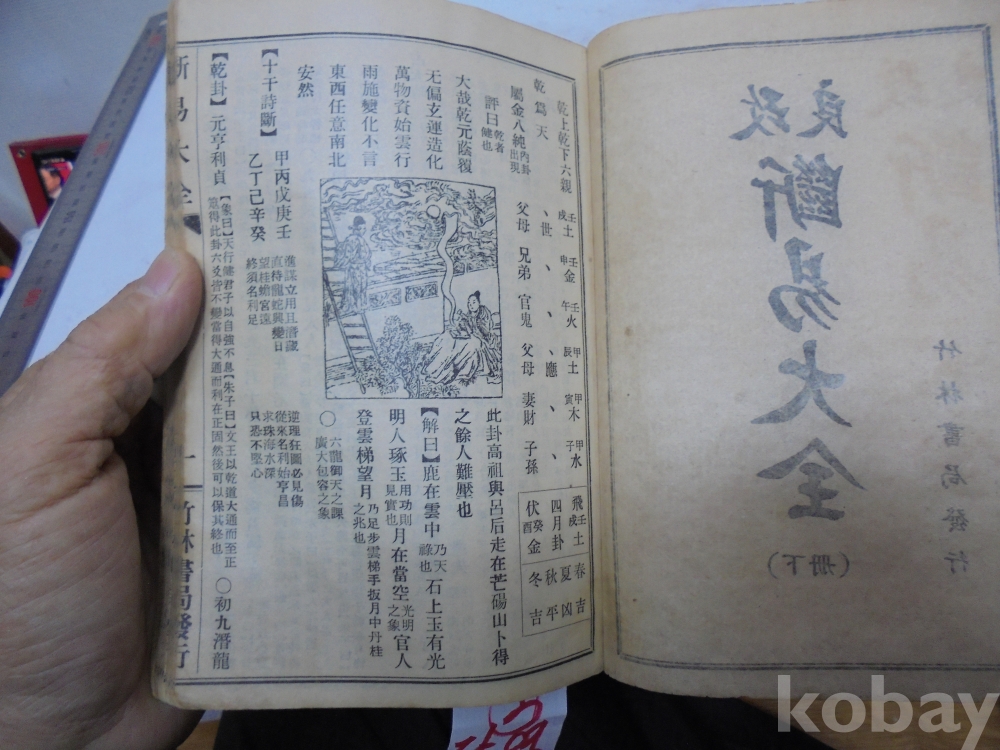 改良
斷易大全
(下册)
竹林書局發行
乾上乾下六親
壬戌土
壬申金
壬午火
甲辰土
甲寅木
甲子水
乾爲天
、世、、、應、、
屬金八純內卦出現
父母 兄弟 官鬼 父母 妻財 子孫
飛壬戌土
四月卦
伏癸酉金
春吉
夏凶
秋平
冬吉
評曰乾者健也
大哉乾元蔭覆
无偏玄運造化
萬物資始雲行
雨施變化不言
東西任意南北
安然
此卦高祖與呂后走在芒碭山卜得
之餘人難壓也
【解曰】鹿在雲中乃天祿也石上玉有光
明人琢玉用功則見實也月在當空光明之象官人
登雲梯望月乃足步雲梯手扳月中丹桂之兆也
○六龍御天之課廣大包容之象
【十干詩斷】
甲丙戊庚壬
進謀立用且潛藏
直待龍蛇興變日
逆理狂圖必見傷
從來名利始亨昌
乙丁己辛癸
望桂蟾宮遠
終須名利足
求珠海水深
只恐不堅心
【乾卦】元亨利貞【象曰】天行健君子以自強不息【朱子曰】文王以乾道大通而至正筮得此卦六爻皆不變當得大通而利在正固然後可以保其終也○初九潛龍
斷易大全
一
竹林書局發行
kobay